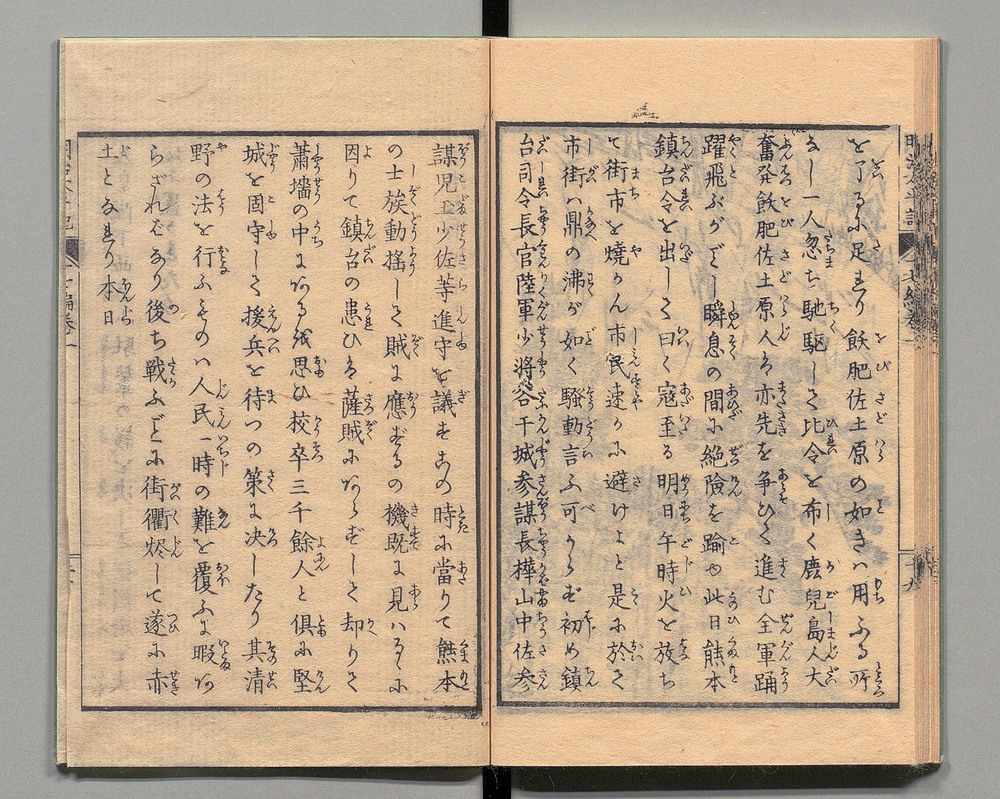 を了るに足れり飫肥佐土原の如きハ用ふる所
なし一人忽ち馳駆して比令を布く鹿児島人大
奮発飫肥佐土原人も亦先を争ひて進む全軍踊
躍飛ぶがごとし瞬息の間に絶険を踰ゆ此日熊本
鎮台令を出して曰く寇至る明日午時火を放ち
て街市を焼かん市民速かに避けよと是に於て
市街ハ鼎の沸が如く騒動言ふ可からず初め鎮
台司令長官陸軍少将谷干城参謀長樺山中佐参
謀児玉少佐等進守を議す此時に當りて熊本
の士族動揺して賊に應ずるの機既に見ハる故に
因りて鎮台の患ひる薩賊にあらずして却りて
蕭墻の中にあるを思ひ校卒三千餘人と倶に堅
城を固守して援兵を待つの策に决したり其清
野の法を行ふものハ人民一時の難を覆ふに暇あ
らざれバなり後ち戦ふごとに街衢烬して遂に赤
土となれり本日